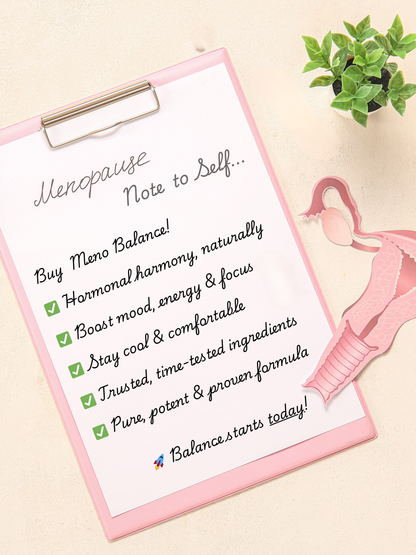 Menopause
Note to Self...
Buy Meno Balance!
✅ Hormonal harmony, naturally
✅ Boost mood, energy & focus
✅ Stay cool & comfortable
✅ Trusted, time-tested ingredients
✅ Pure, potent & proven formula
🚀 Balance starts today!